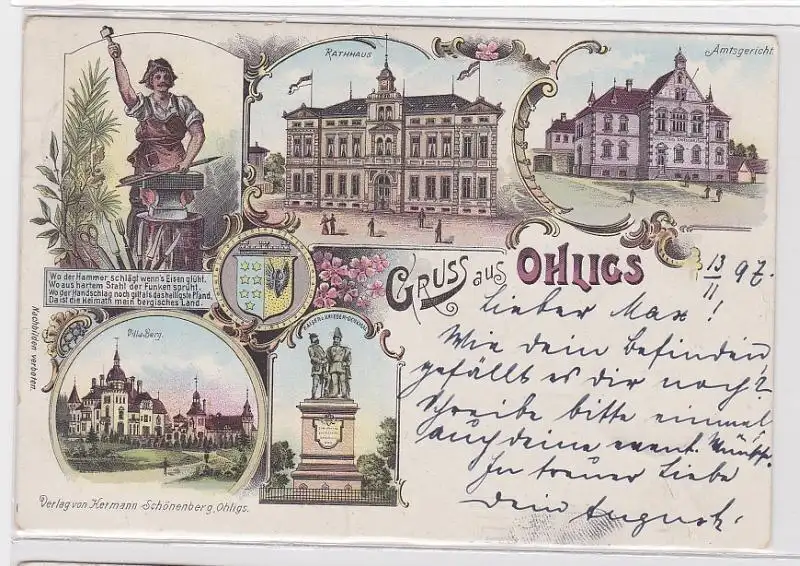 RATHHAUS
Amtsgericht.
Wo der Hammer schlägt wenn's Eisen glüht,
Wo aus hartem Stahl der Funken sprüht.
Wo der Handschlag noch gilt als das heiligste Pfand,
Da ist die Heimath mein bergisches Land.
GRUSS aus OHLIGS
13/11 97.
Lieber Max!
Wie dein befinden,
gefällts es dir noch?
Schreibe bitte einmal
auch deine event. Wünsche.
In treuer Liebe
dein August.
Nachbilden verboten.
Villa Berg.
KAISER u. KRIEGER-DENKMAL
Verlag von Hermann Schönenberg, Ohligs.